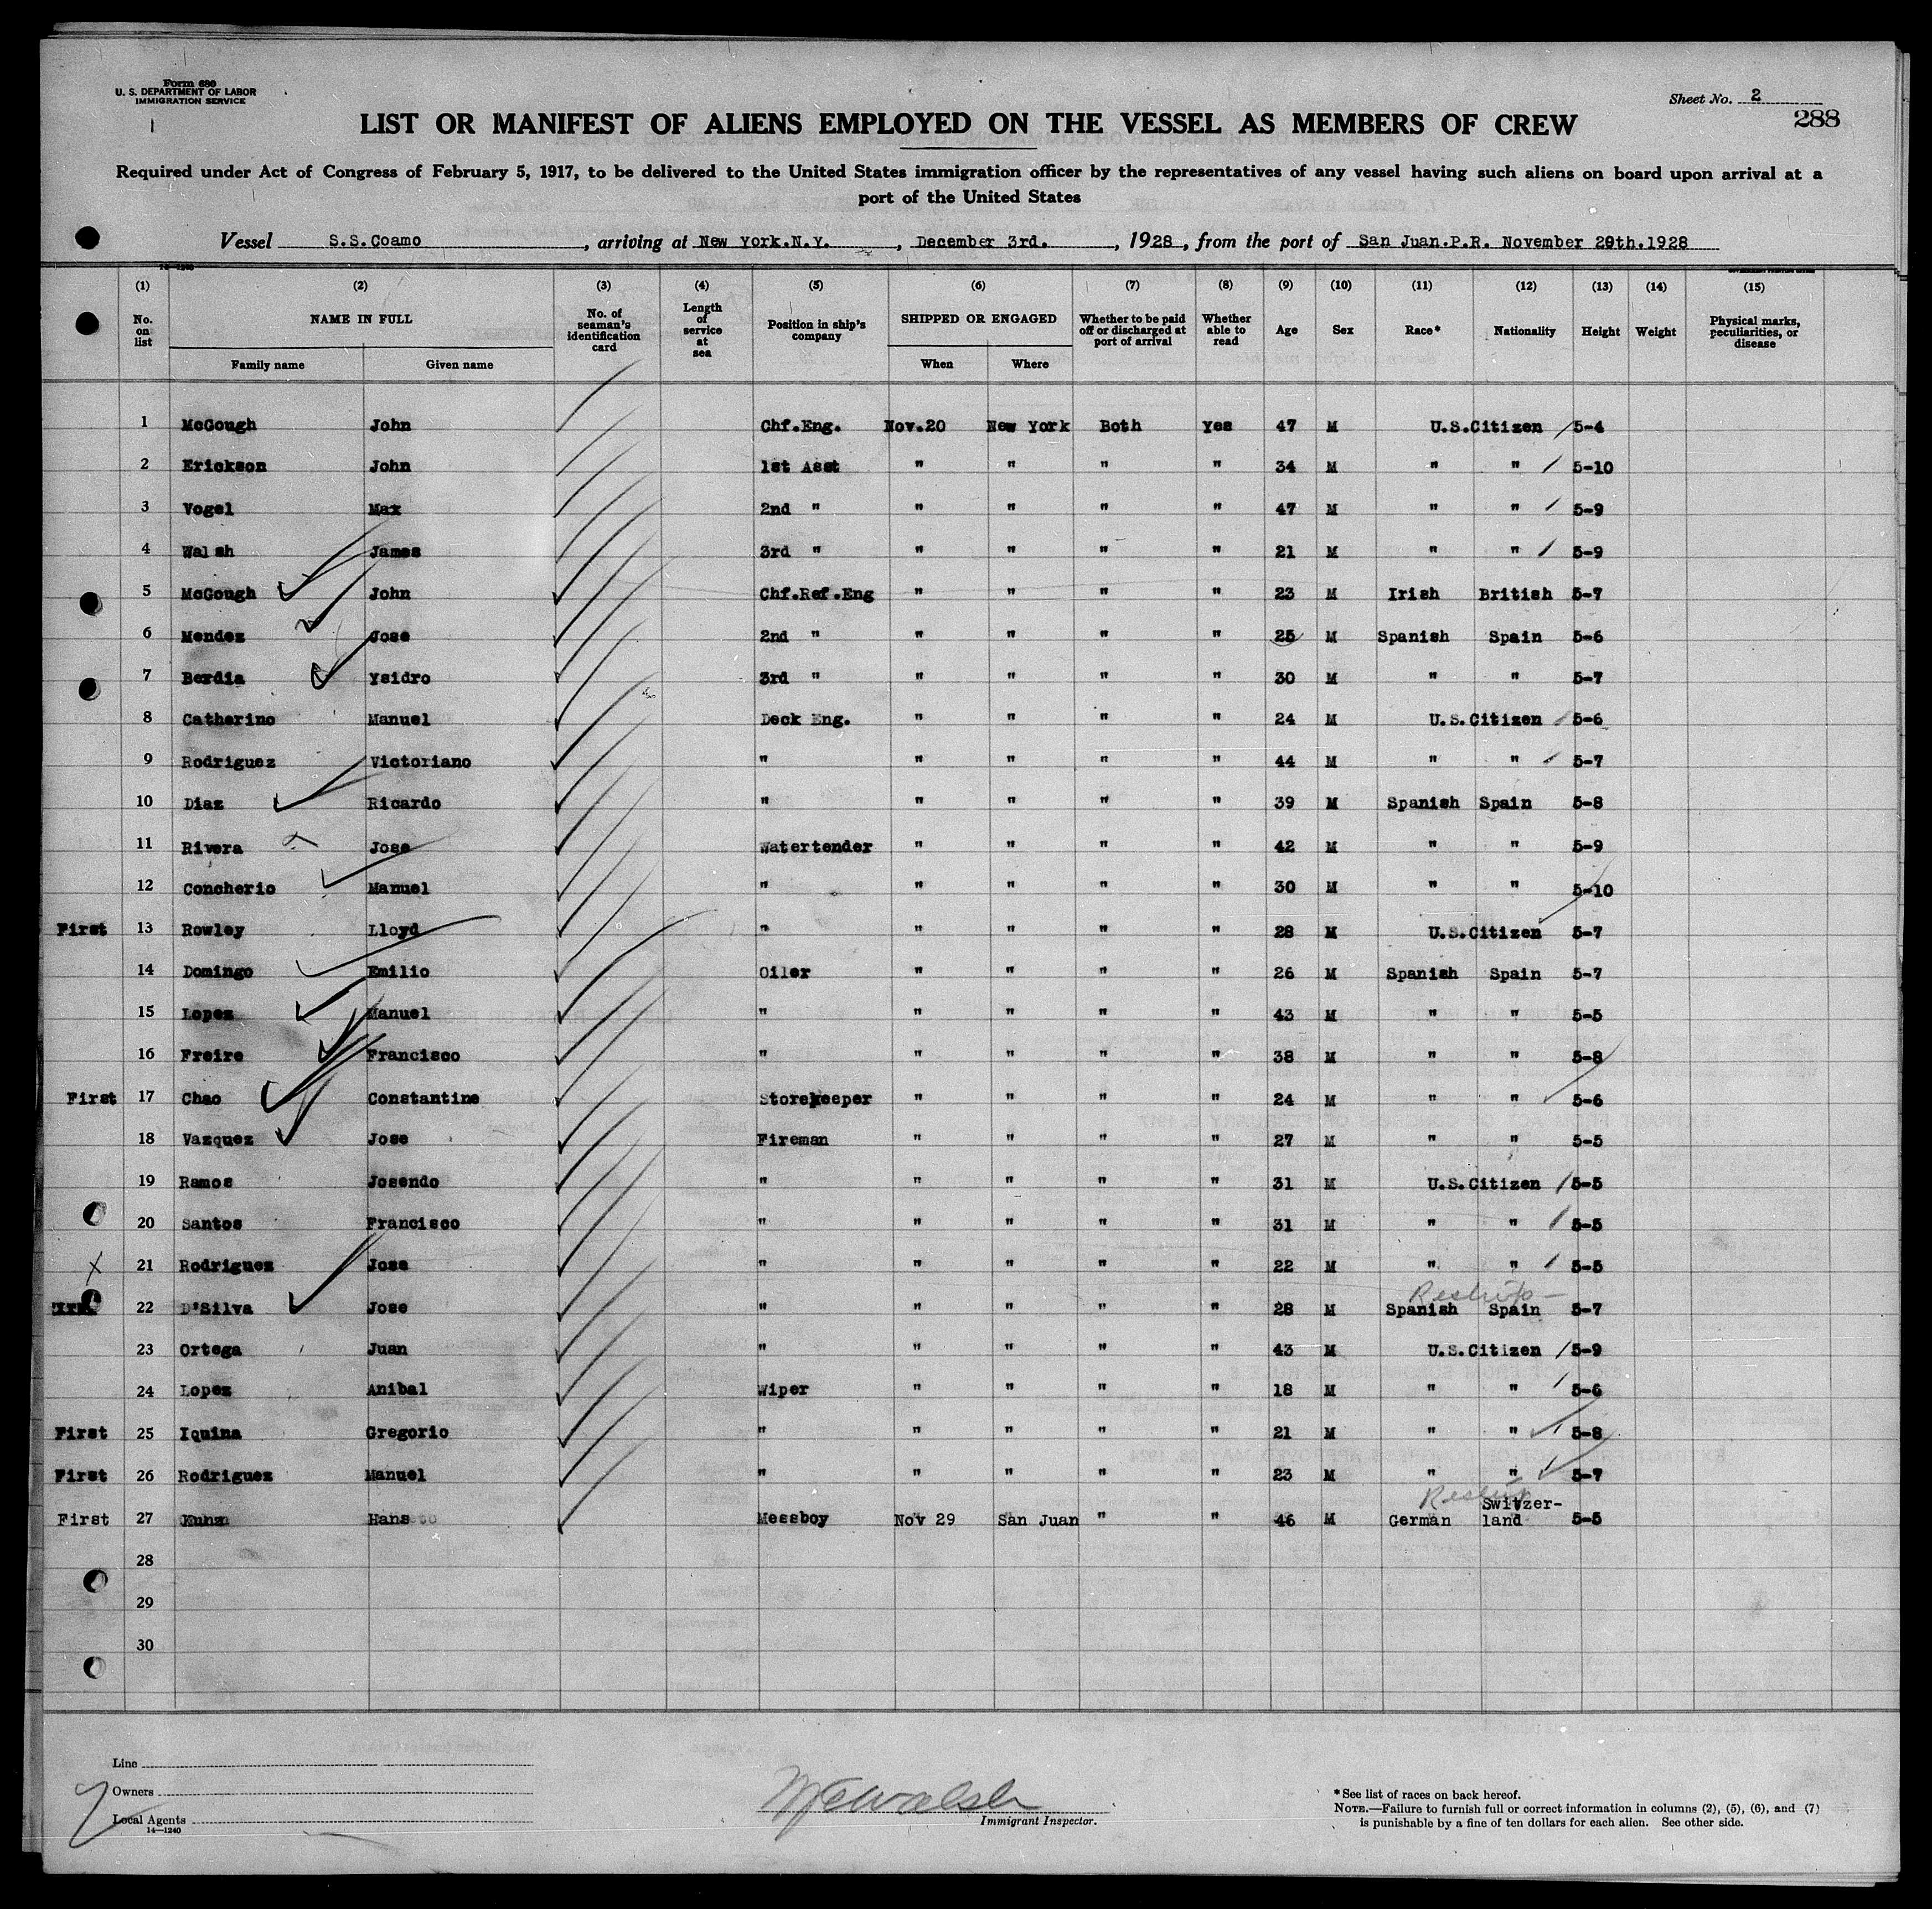 Form 680
U. S. DEPARTMENT OF LABOR
IMMIGRATION SERVICE
Sheet No. 2
288
LIST OR MANIFEST OF ALIENS EMPLOYED ON THE VESSEL AS MEMBERS OF CREW
Required under Act of Congress of February 5, 1917, to be delivered to the United States immigration officer by the representatives of any vessel having such aliens on board upon arrival at a
port of the United States
Vessel S.S.Coamo, arriving at New York.N.Y., December 3rd., 1928, from the port of San Juan.P.R. November 29th.1928
(1) (2) (3) (4) (5) (6) (7) (8) (9) (10) (11) (12) (13) (14) (15)
No. on list NAME IN FULL No. of seaman's identification card Length of service at sea Position in ship's company SHIPPED OR ENGAGED Whether to be paid off or discharged at port of arrival Whether able to read Age Sex Race* Nationality Height Weight Physical marks, peculiarities, or disease
Family name Given name When Where
1 McGough John Chf.Eng. Nov.20 New York Both Yes 47 M U.S.Citizen 5-4
2 Erickson John 1st Asst " " " " 34 M " " 5-10
3 Vogel Max 2nd " " " " " 47 M " " 5-9
4 Walsh James 3rd " " " " " 21 M " " 5-9
5 McGough John Chf.Ref.Eng " " " " 23 M Irish British 5-7
6 Mendez Jose 2nd " " " " " 25 M Spanish Spain 5-6
7 Berdia Ysidro 3rd " " " " " 30 M " " 5-7
8 Catherino Manuel Deck Eng. " " " " 24 M U.S.Citizen 5-6
9 Rodriguez Victoriano " " " " " 44 M " " 5-7
10 Diaz Ricardo " " " " " 39 M Spanish Spain 5-8
11 Rivera Jose Watertender " " " " 42 M " " 5-9
12 Concherio Manuel " " " " " 30 M " " 5-10
First 13 Rowley Lloyd " " " " " 28 M U.S.Citizen 5-7
14 Domingo Emilio Oiler " " " " 26 M Spanish Spain 5-7
15 Lopez Manuel " " " " " 43 M " " 5-5
16 Freire Francisco " " " " " 38 M " " 5-8
First 17 Chao Constantine Storekeeper " " " " 24 M " " 5-6
18 Vazquez Jose Fireman " " " " 27 M " " 5-5
19 Ramos Josendo " " " " " 31 M U.S.Citizen 5-5
20 Santos Francisco " " " " " 31 M " " 5-5
X 21 Rodriguez Jose " " " " " 22 M " " 5-5
Reship
22 D'Silva Jose " " " " " 28 M Spanish Spain 5-7
23 Ortega Juan " " " " " 43 M U.S.Citizen 5-9
24 Lopez Anibal Wiper " " " " 18 M " " 5-6
First 25 Iquina Gregorio " " " " " 21 M " " 5-8
First 26 Rodriguez Manuel " " " " " 23 M " " 5-7
Reship
First 27 Kunz Hans Messboy Nov 29 San Juan " " 46 M German Switzer-land 5-5
28
29
30
Line
Owners
Local Agents
14—1240
Immigrant Inspector.
*See list of races on back hereof.
NOTE.—Failure to furnish full or correct information in columns (2), (5), (6), and (7)
is punishable by a fine of ten dollars for each alien. See other side.